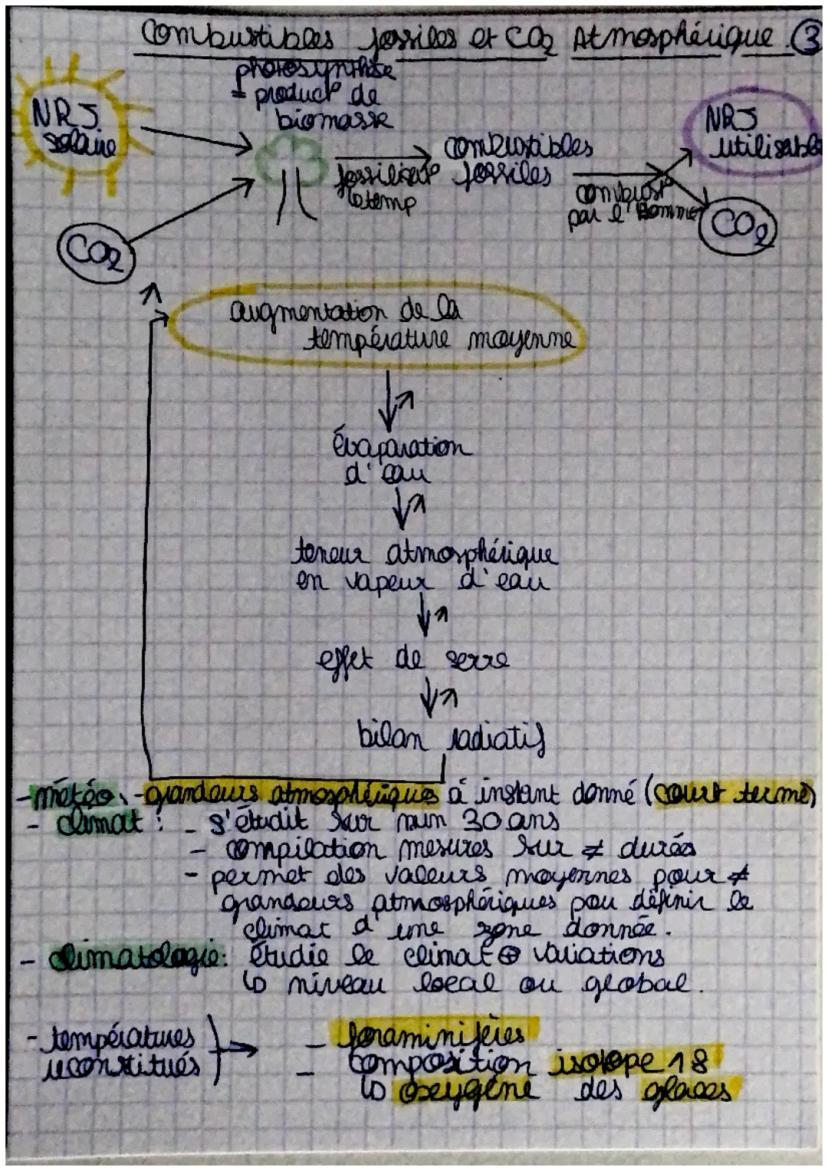 Combustibles fossiles et CO2 Atmosphérique. 3
photosynthèse
= product° de
biomasse
NRJ
solaire
NRJ
utilisable
combustibles
fossiles
fossilisat°
combust°
par l'Homme
CO2
CO2
augmentation de la
température moyenne
évaporation
d'eau
teneur atmosphérique
en vapeur d'eau
effet de serre
bilan radiatif
- météo: - grandeurs atmosphériques à instant donné (court terme)
- climat : - s'étudit sur mim 30 ans
- compilation mesures sur ≠ durés
- permet des valeurs moyennes pour ≠
grandeurs atmosphériques pou définir le
climat d'une zone donnée.
- climatologie: étudie le climat ⊕ variations
↳ niveau local ou global.
- températures
reconstitués
→ - foraminifères
- composition isotope 18
↳ oxygène des glaces